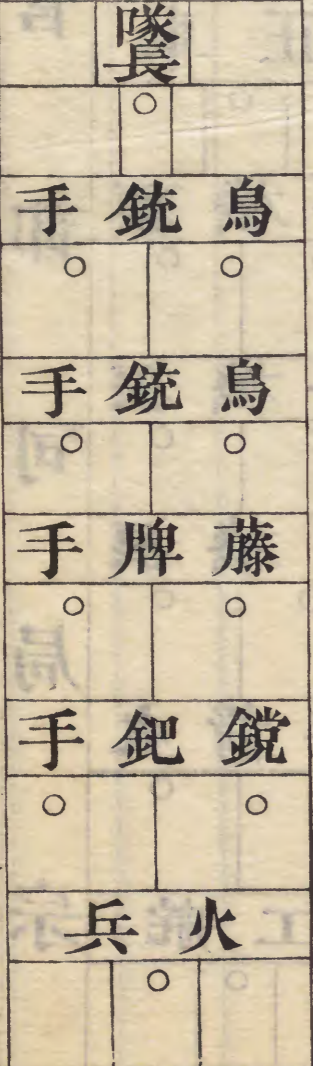 隊長
鳥銃手
鳥銃手
藤牌手
鎲鈀手
火兵